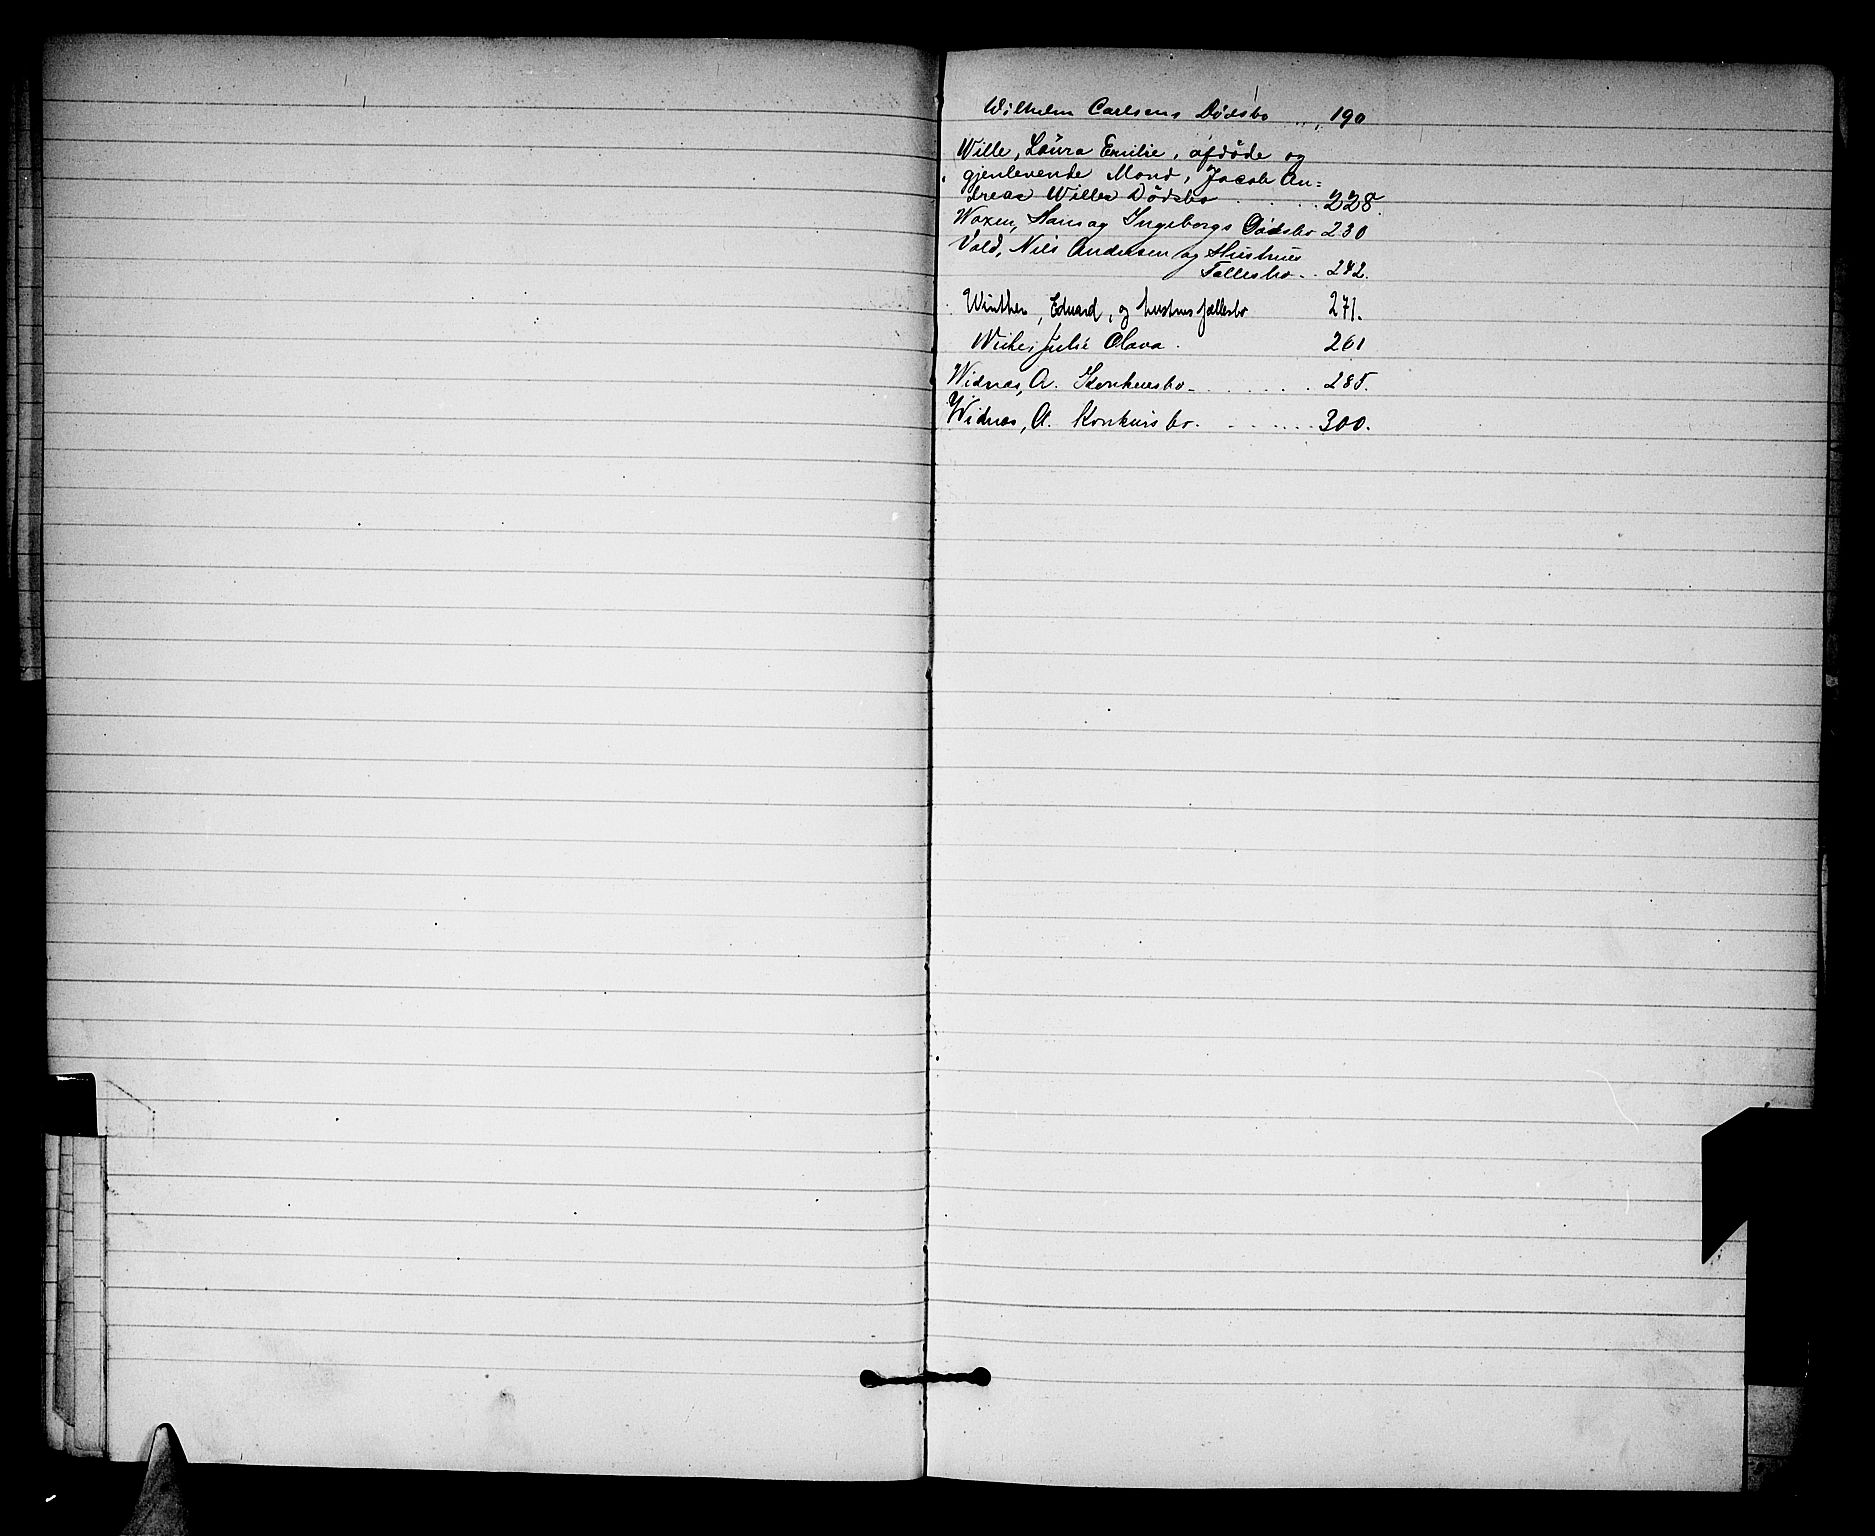 Wilhelm Carlsens Dødsbo .. , 190
Wille, Laura Emilie, afdøde og
gjenlevende Mand, Jacob An=
dreas Willes Dødsbo . . . . 228.
Woxen, Hans og Ingeborgs Dødsbo 230
Vold, Nils Andersen og Hustrues
Fællesbo . . 242.
Winther, Eduard, og hustrus fællesbo 271.
Julie Olava . 261
Widnæs, A. Konkursbo . . . . . 285.
Widnæs, A. Konkursbo . . . . . . 300.